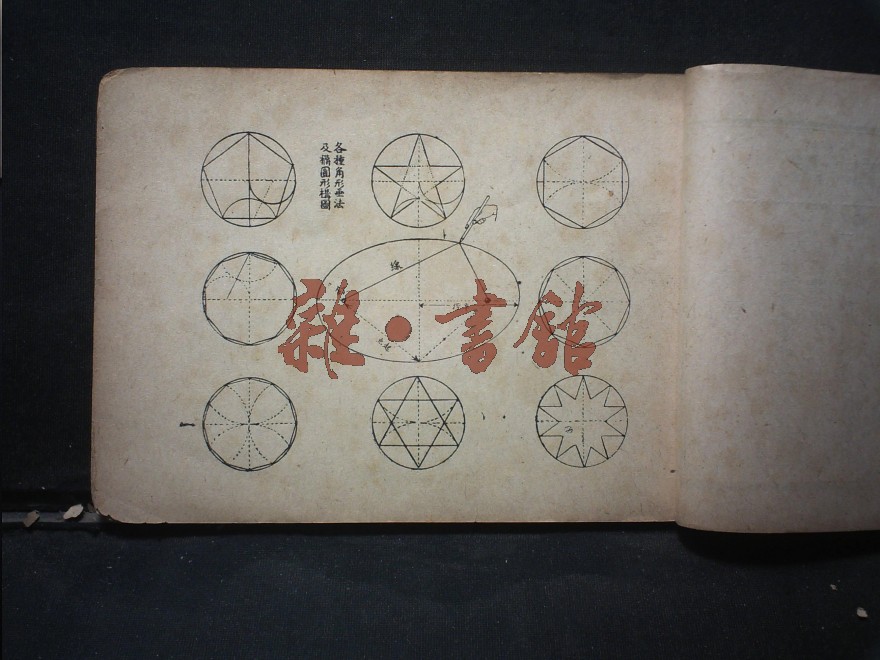 各種角形画法
及橢圓形構圖
線
雜·書館
一